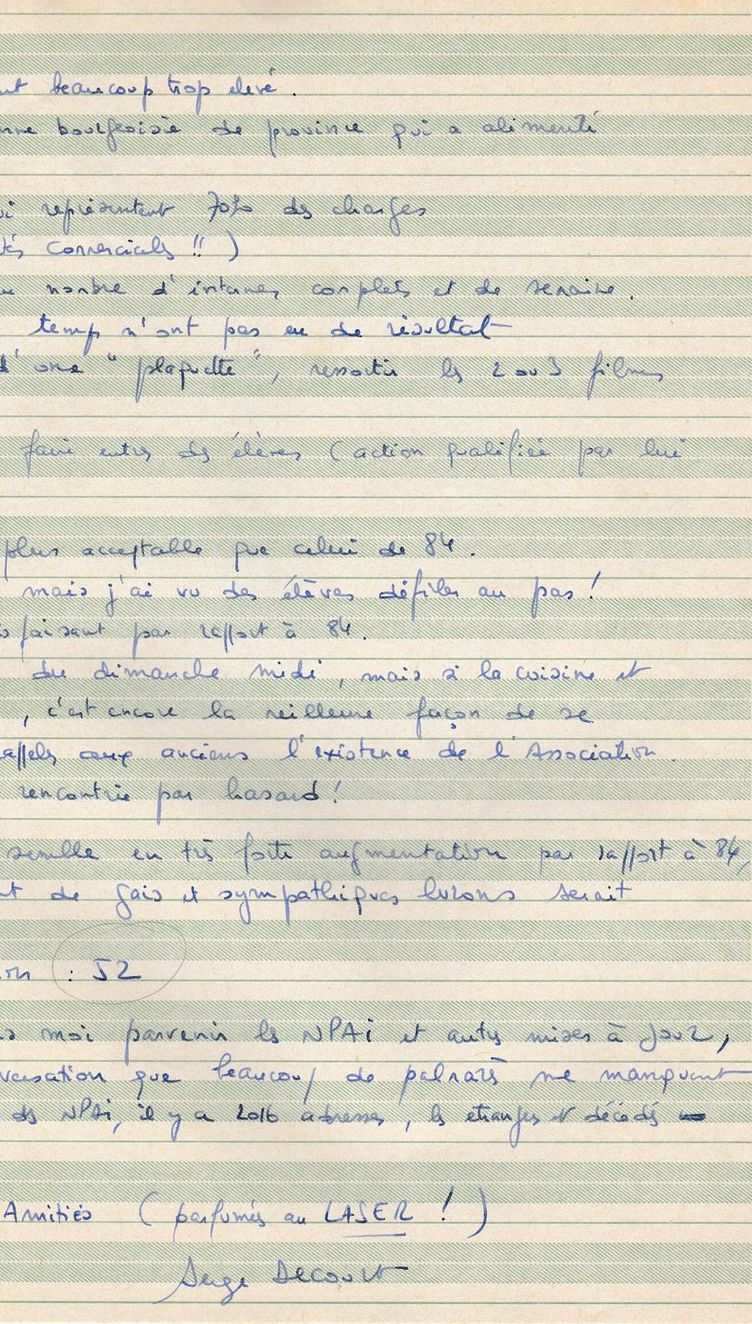 nt beaucoup trop élevé.
nne bourgeoisie de province qui a alimenté
ui représentent 70% des charges
tés commerciales !!)
u nombre d'internes complets et de semaine.
temp n'ont pas eu de résultat
d'une "plaquette", ressortir les 2 ou 3 films
faire entrer des élèves (action qualifiée par lui
plus acceptable que celui de 84.
mais j'ai vu des élèves défiler au pas !
sfaisant par rapport à 84.
du dimanche midi, mais si la cuisine et
, c'est encore la meilleure façon de se
appels aux anciens l'existence de l'Association.
rencontrée par hasard !
semble en très forte augmentation par rapport à 84,
nt de gais et sympathiques lurons serait
on : 52
s moi parvenir les NPAi et autres mises à jour,
versation que beaucoup de palmarès me manquent
ds NPAi, il y a 2016 adresses, les étrangers et décédés
Amitiés (parfumés au LASER !)
Serge Decourt